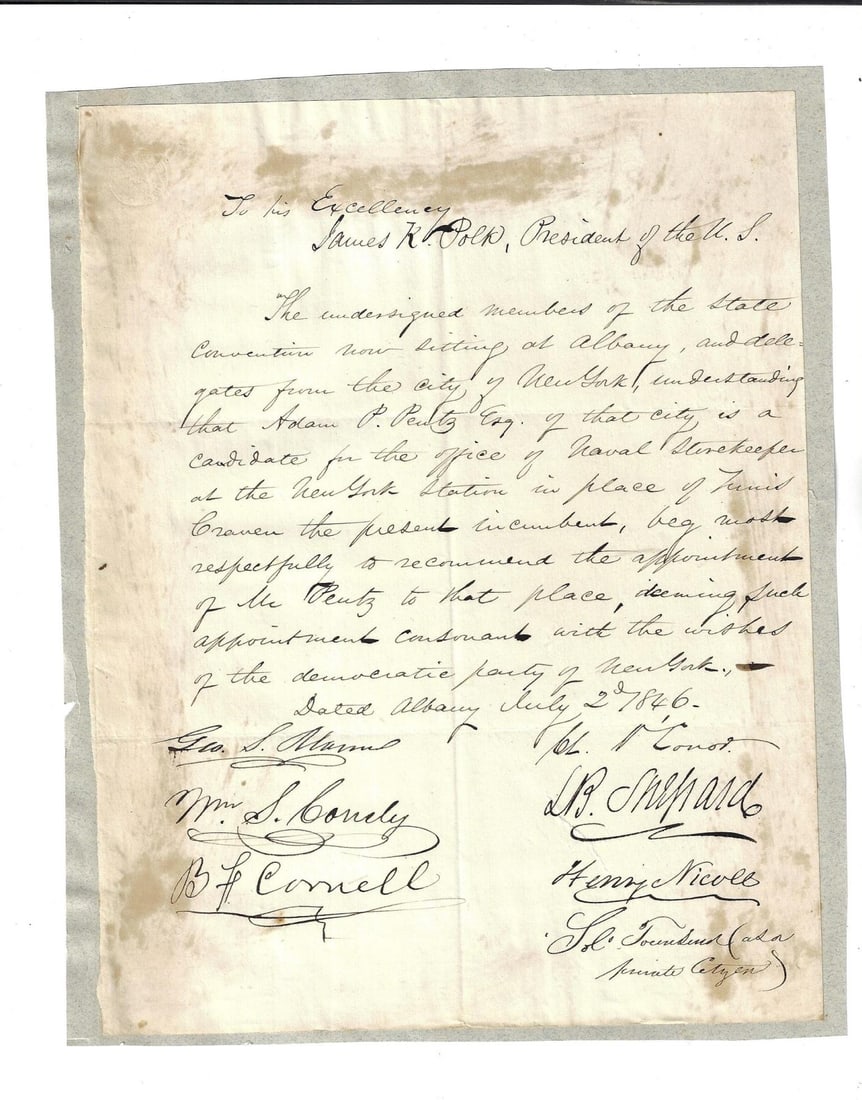 To his Excellency
James K. Polk, President of the U. S.
The undersigned members of the state
convention now sitting at Albany, and dele-
gates from the city of New York, understanding
that Adam P. Pentz Esq. of that city is a
candidate for the office of Naval Storekeeper
at the New York Station in place of Tunis
Craven the present incumbent, beg most
respectfully to recommend the appointment
of Mr Pentz to that place, deeming such
appointment consonant with the wishes
of the democratic party of New York.,
Dated Albany July 2d 1846-
Geo. S. Mann
Wm. S. Conely
B F Cornell
Ch. O'Conor.
L B. Shepard
Henry Nicoll
Sol. Townsend (as a
private Citizen)